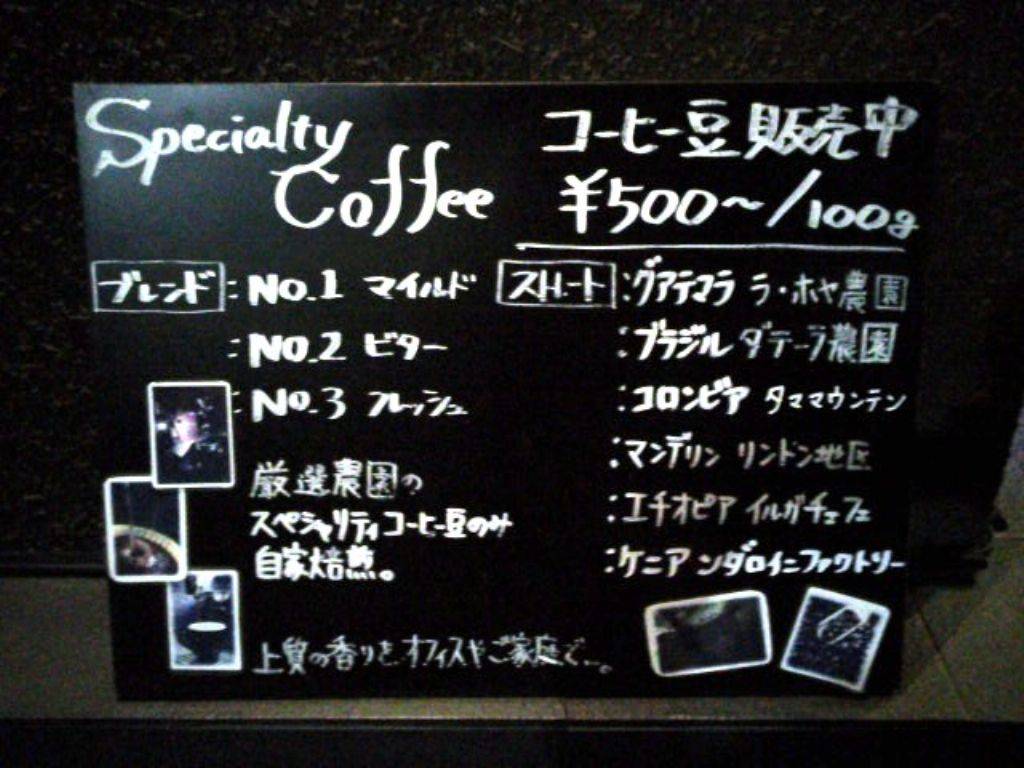 Specialty
Coffee
コーヒー豆販売中
¥500〜/100g
ブレンド：No.1 マイルド
：No.2 ビター
：No.3 フレッシュ
ストレート：グアテマラ ラ・ホヤ農園
：ブラジル ダテーラ農園
：コロンビア タママウンテン
：マンデリン リントン地区
：エチオピア イルガチェフェ
：ケニア ンダロイニファクトリー
厳選農園の
スペシャリティコーヒー豆のみ
自家焙煎。
上質の香りをオフィスやご家庭で…。